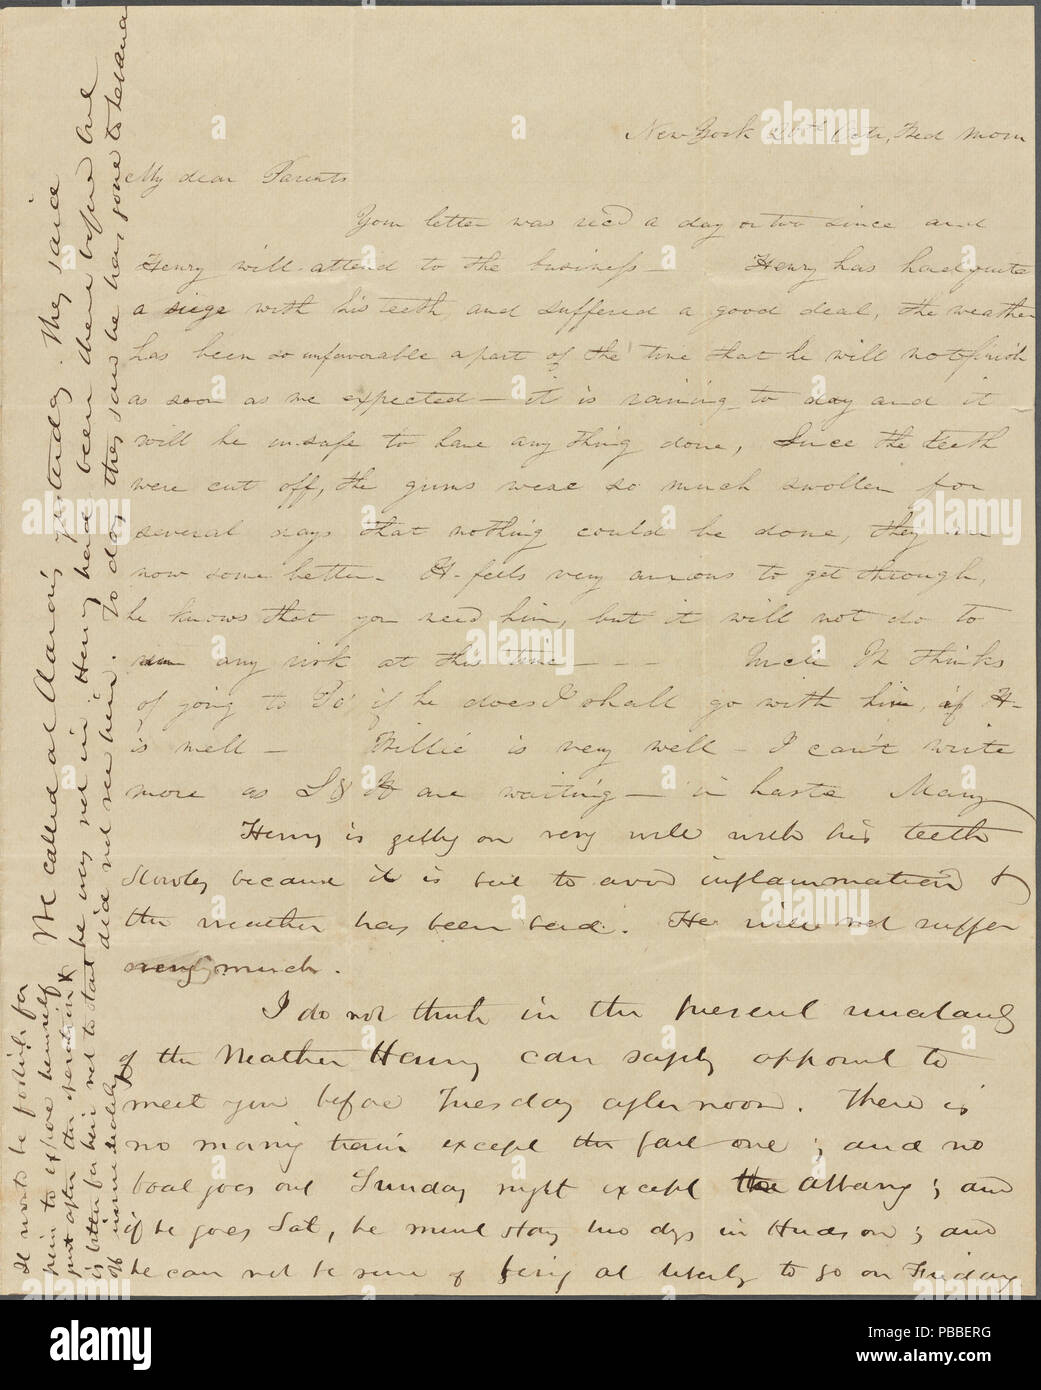 New York 26th Octr, Wed Morn
My dear Parents
Your letter was recd a day or two since and
Henry will attend to the business — Henry has had quite
a siege with his teeth and suffered a good deal, the weather
has been so unfavorable a part of the time that he will not finish
as soon as we expected — it is raining to day and it
will be unsafe to have any thing done, Since the teeth
were cut off, the gums were so much swollen for
several days that nothing could be done, they are
now some better. H. feels very anxious to get through,
he knows that you need him, but it will not do to
run any risk at this time — — — Uncle Wm thinks
of going to Po' if he does I shall go with him, if H-
is well — Willie is very well — I can't write
more as L & H are waiting — in haste Mary
Henry is getting on very well with his teeth
slowly because it is best to avoid inflammation &
the weather has been bad. He will not suffer
very much.
I do not think in the present
of the Weather Henry can safely appoint to
meet you before Tuesday afternoon. There is
no morning train except the fast one; and no
boat goes out Sunday night except the Albany; and
if he goes Sat, he must stay two dys in Hudson; and
he can not be sure of being at liberty to go on Friday
It wont be for
him to expose himself
just after the operation &
is better for him not to start
off immediately
We called at yesterday. They said
he was not in. Henry had been there before and
did not see him. To day they said he has gone to
a
alamy
alamy
Image ID: PBBERG
www.alamy.com